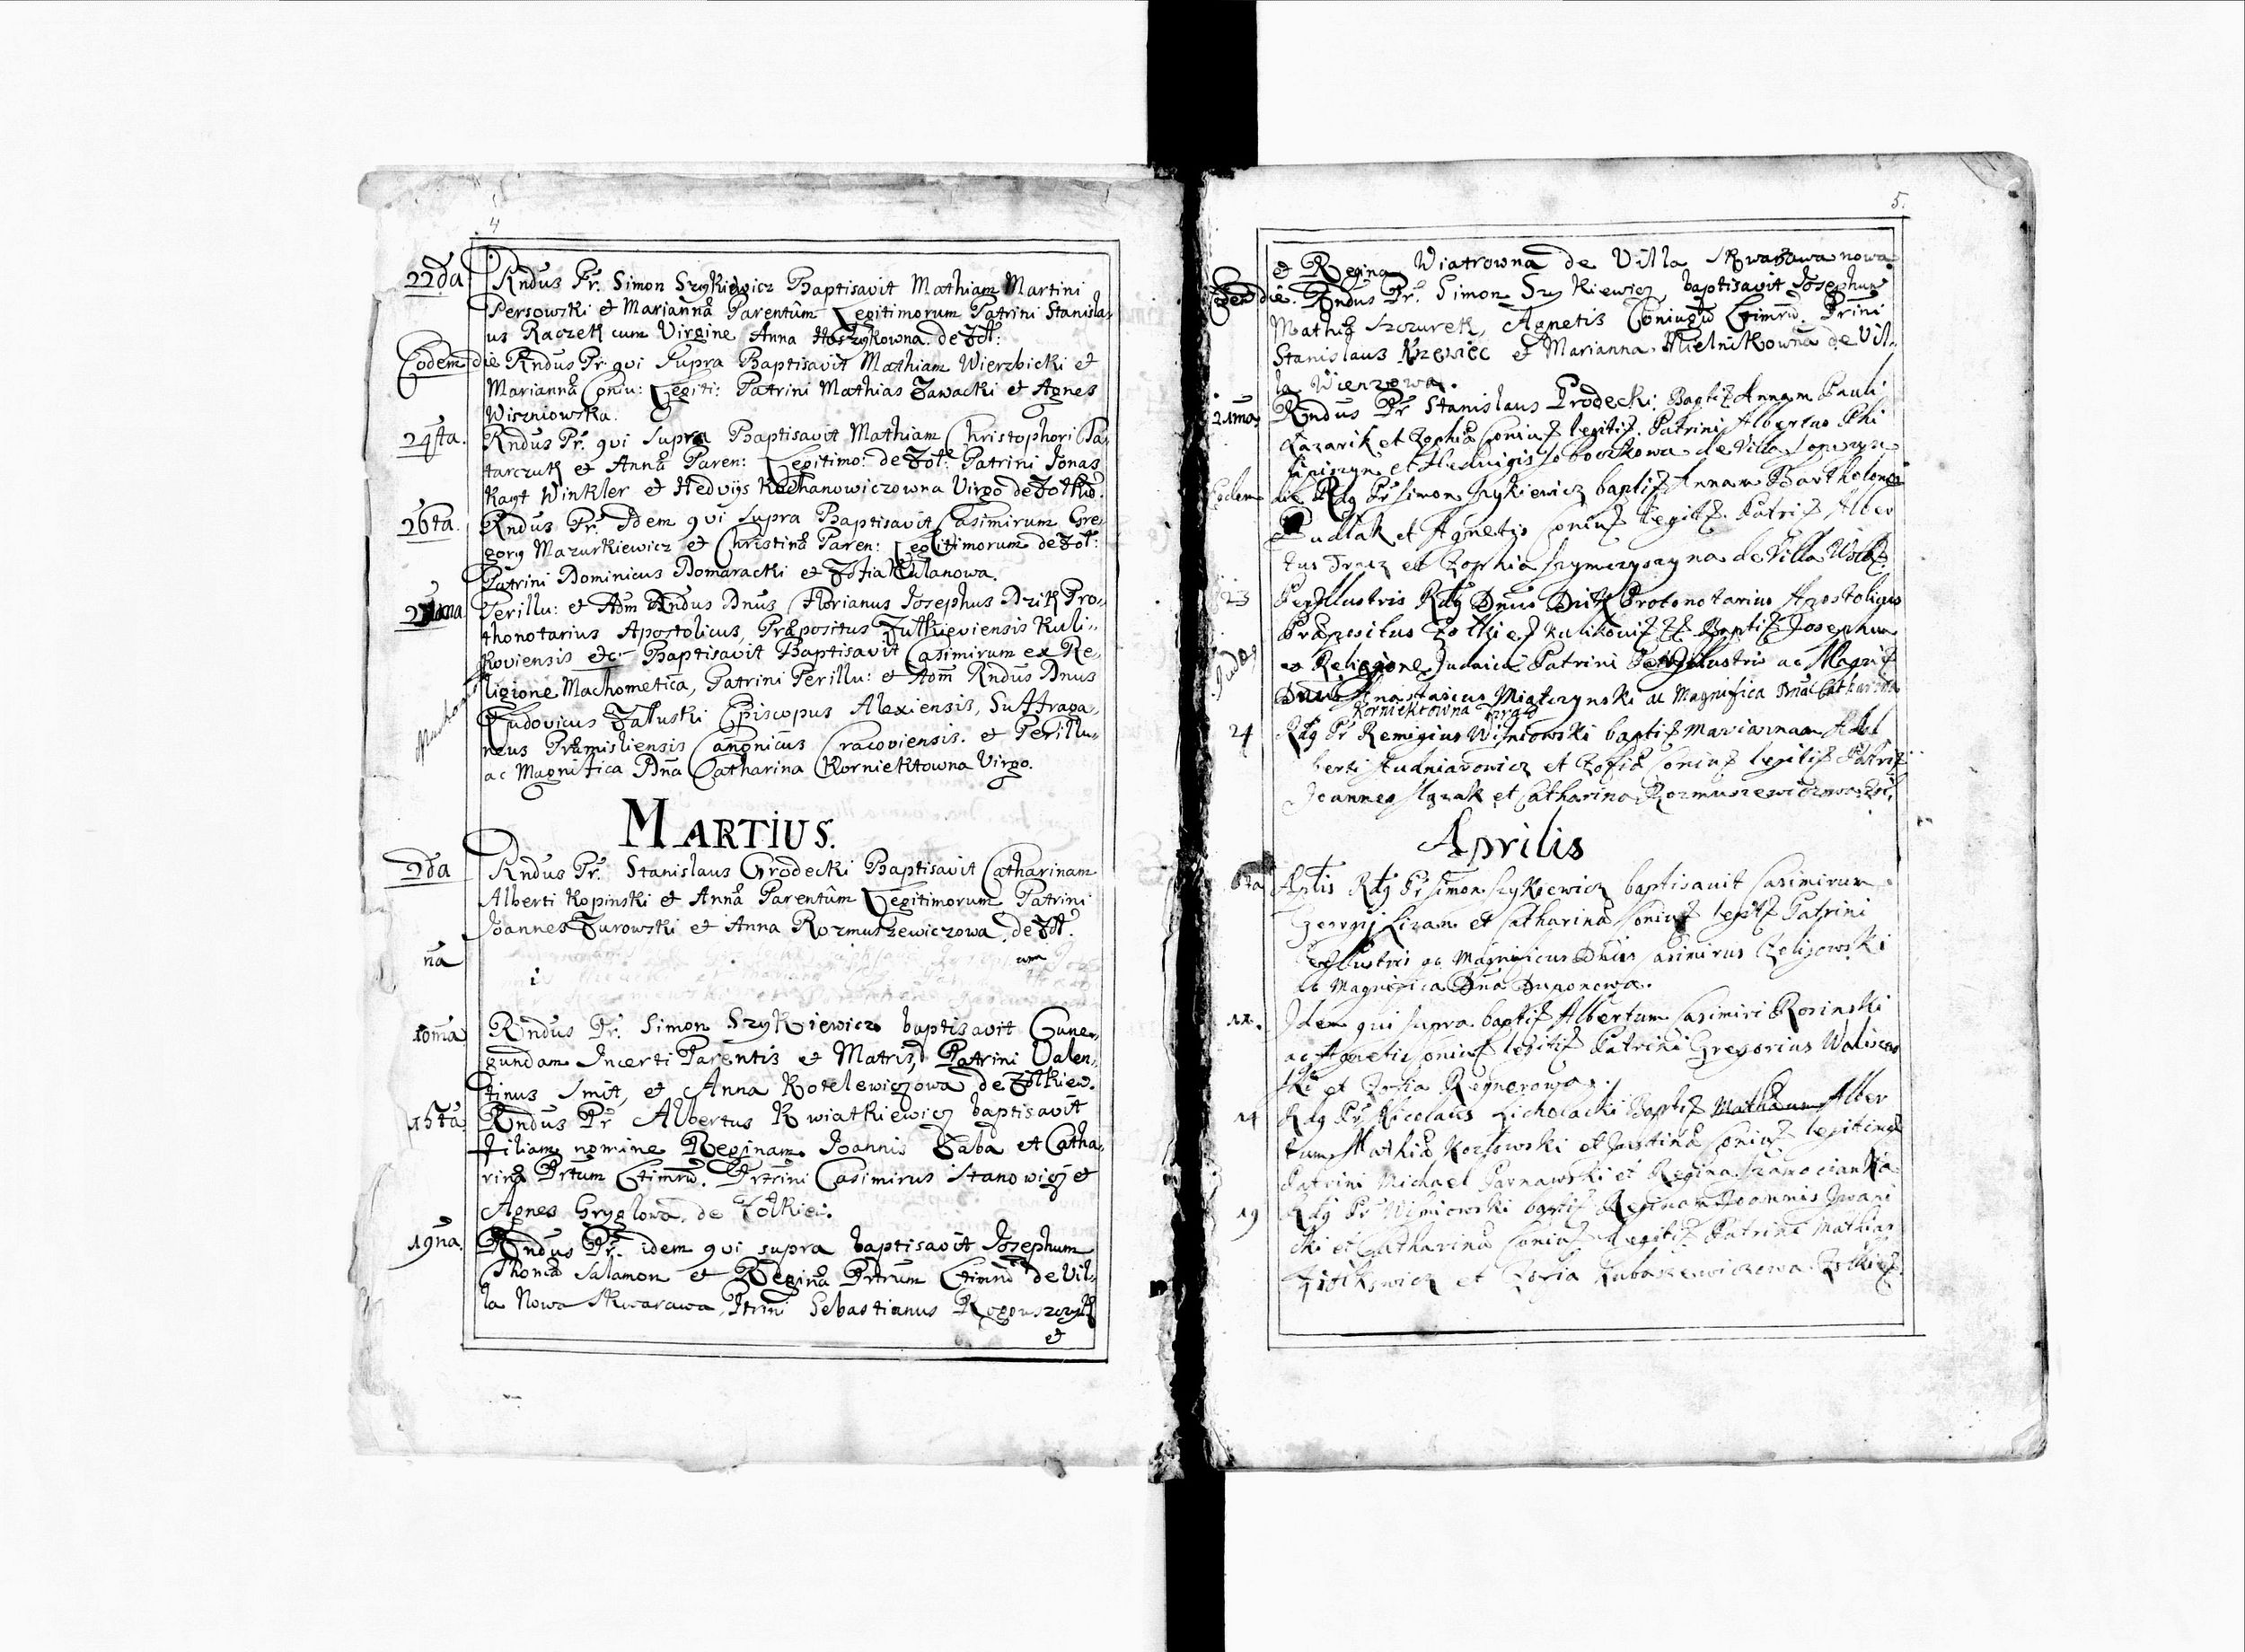 4
22da Rndus Pr. Simon Szykiewicz Baptisavit Mathiam Martini
Persowski et Marianna Parentûm Legitimorum Patrini Stanisla-
us Raczek cum Virgine Anna de Zol:
Eodem die Rndus Pr qui Supra Baptisavit Mathiam Wierzbicki et
Marianna Coniu: Legiti: Patrini Mathias Zawacki et Agnes
Wiszniowska.
24ta. Rndus Pr. qui Supra Baptisavit Mathiam Christophori Ta-
tarczuk et Anna Paren: Legitimo: de Zol: Patrini Jonas
Kayt Winkler et Hedvijs Kochanowiczowna Virgo de Zolkw.
26ta. Rndus Pr. Idem qui Supra Baptisavit Casimirum Gre-
gory Mazurkiewicz et Christina Paren: Legitimorum de Zol:
Patrini Dominicus Domaracki et Zofia Kulanowa.
Perillu: et Adm Rndus Dnus Florianus Josephus Dzik Pro-
thonotarius Apostolicus, Præpositus Zulkieviensis Kuli-
koviensis etc: Baptisavit Baptisavit Casimirum ex Re-
ligione Machometica, Patrini Perillu: et Adm Rndus Dnus
Ludovicus Zaluski Episcopus Alexiensis, Suffraga-
neus Præmisliensis Canonicus Cracoviensis. et Perillu-
ac Magnifica Dna Catharina Korniektowna Virgo.
MARTIUS.
2da Rndus Pr. Stanislaus Grodecki Baptisavit Catharinam
Alberti Kopinski et Anna Parentûm Legitimorum Patrini
Joannes Zurowski et Anna Rozmuszewiczowa. de Zol.
na
um
i
10ma Rndus Pr. Simon Szykiewicz baptisavit Cune-
gundam Incerti Parentis et Matris, Patrini Valen-
tinus Smit, et Anna Kotelewiczowa de Zolkiew.
15ta Rndus Pr Albertus Kwiatkiewicz baptisavit
filiam nomine Reginam Joannis Zaba et Catha-
rina Prtum Ltimru. Prtrini Casimirus Stanowicz et
Agnes Gryglowa, de Zolkiew.
19na. Rndus Pr. idem qui supra baptisavit Josephum
Thoma Salamon et Regina Prtrum Ltimru de Vil-
la Nowa Skwarawa, Ptrini Sebastianus Rogouszczyk
et
5.
et Regina Wiatrowna de Villa Skwarawa nowa
Eodem die. Rndus Pr. Simon Szykiewicz baptisavit Josephum
Mathiæ Szczurek, Agnetis Coniugu Ltimru. Prini
Stanislaus Krzewiec et Marianna Mielnikowna de Vil-
la Wienzowa.
21ma Rndus Pr Stanislaus Grodecki Baptiz Annam Pauli
Lazarik et Zophia Coniuz legitiz. Patrini Albertus Phi
et Hedwigis Sobockowa de Villa
Eodem die Rdg Pr Simon Szykiewicz baptiz Annam Bartholomei
Pudlak et Agnetis Coniuz legitiz. Patriz Alber
tus Tracz et Zophia de Villa
23 Perillustris Rdg Dnus Dzik Protonotarius Apostolicus
Præpositus Zolkiez Kulikoviz Baptiz Josephum
ex Religione Judaica Patrini Perillustris ac Magniz
Dnus Anastasius Miatczynski ac Magnifica Dna Catharina
Korniektowna Virgo
24 Rdg Pr Remigius Wisniowski baptiz Mariannam Adal
berti Studniarowicz et Zofia Coniuz legitiz Patriz
Joannes Slazak et Catharina Rozmuszewiczowa Zol.
Aprilis
6ta Aplis Rdg Pr Simon Szykiewicz baptisauit Casimirum
Georgij Lizan et Catharina Coniuz legitz Patrini
Perillustris ac Magnificus Dnus Casimirus Zelisowski
ac Magnifica Dna Duponowa.
11. Idem qui supra baptiz Albertum Casimiri Rosinski
ac Agnetis Coniuz legitiz Patrini Gregorius Walisow
ski et Zofia Regnerowa.
14 Rdg Pr Nicolaus Licholacki Baptiz Alber
tum Mathia Kozlowski et Justina Coniuz legitimz
Patrini Michael Tarnawski et Regina
19 Rdg Pr Wisniowski baptiz Reginam Joannis Iwani
cki et Catharina Coniuz legitiz Patrini Mathias
et Zofia Lubaszewiczowa Zolkiez.